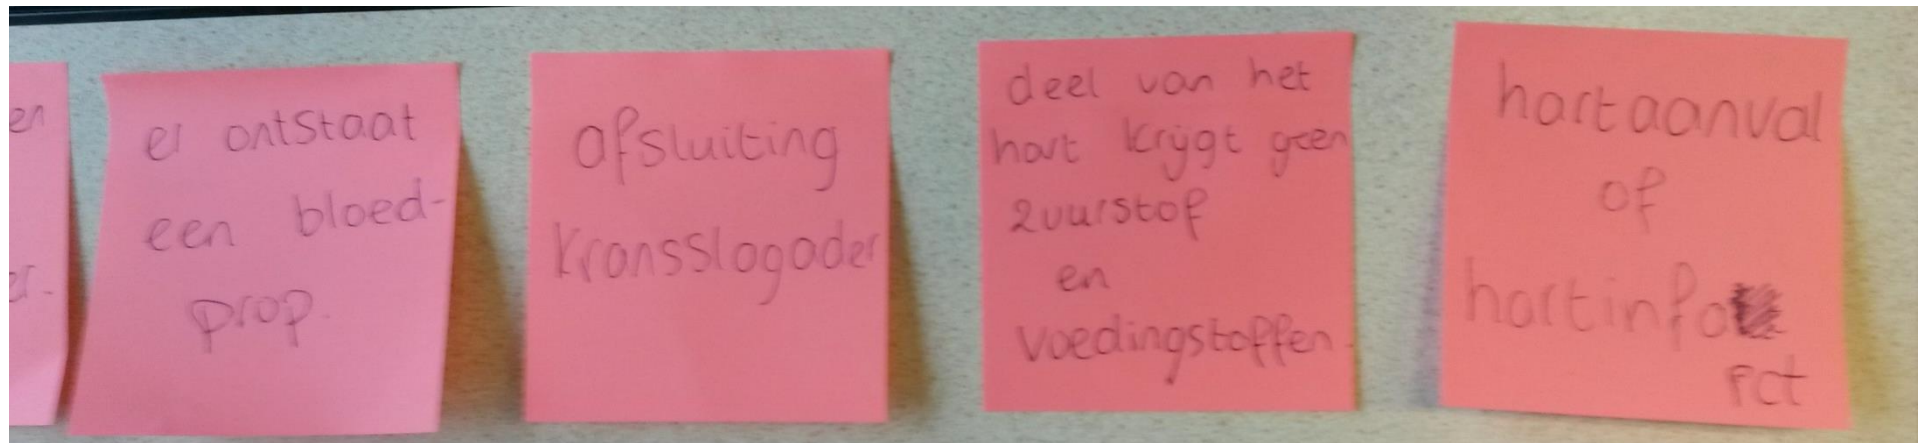 en
er.
er ontstaat
een bloed-
prop.
afsluiting
kransslagader
deel van het
hart krijgt geen
zuurstof
en
voedingstoffen.
hartaanval
of
hartinfa
rct